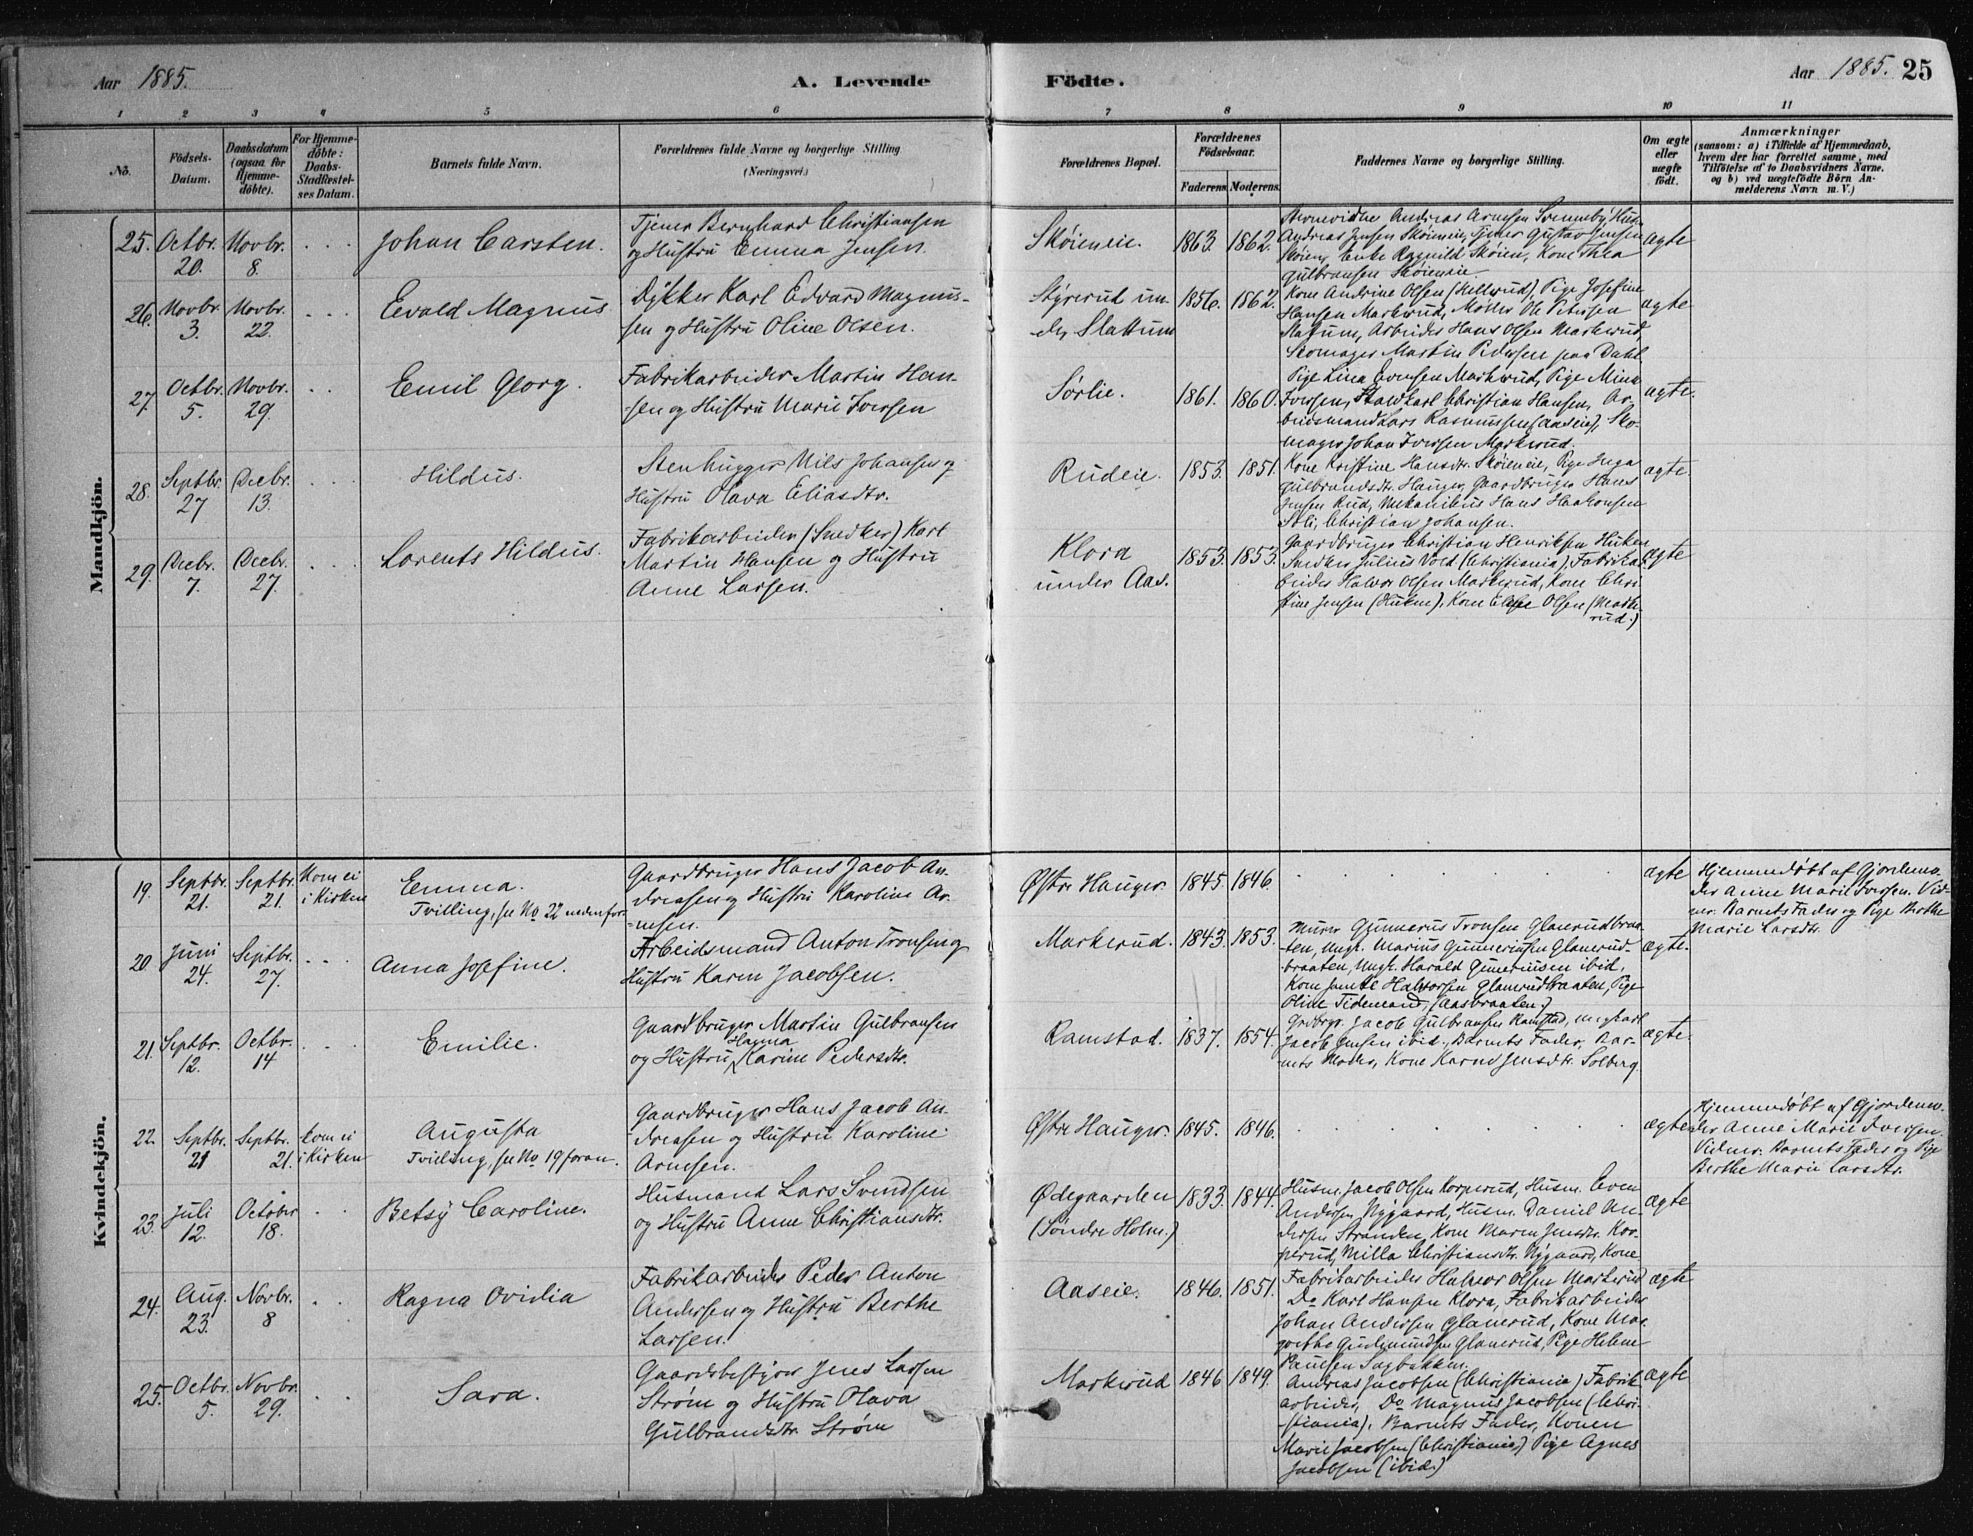 Aar 1885.
A. Levende Födte.
Aar 1885. 25
1 2 3 4 5 6 7 8 9 10 11
No.
Födsels-
Datum.
Daabsdatum
(ogsaa for
Hjemme-
döbte).
For Hjemme-
döbte:
Daabs-
Stadfæstel-
ses Datum.
Barnets fulde Navn.
Forældrenes fulde Navne og borgerlige Stilling
(Næringsvei.)
Forældrenes Bopæl.
Forældrenes
Födselsaar.
Faderens. Moderens.
Faddernes Navne og borgerlige Stilling.
Om ægte
eller
uægte
födt.
Anmærkninger
(saasom: a) i Tilfælde af Hjemmedaab,
hvem der har forrettet samme, med
Tilföielse af to Daabsvidners Navne,
og b) ved uægtefödte Börn An-
melderens Navn m. V.)
Mandkjön.
25. Octbr. 20. Novbr. 8. Johan Carsten.
Tjener Bernhard Christiansen
og Hustru Emma Jensen.
Skøieneie. 1863. 1862.
Andreas Arnesen
Andreas Jensen Skøieneie, Tjener Gustav Jensen
Skøien, Enke Ragnild Skøien, Kone Thea
Gulbransen Skøieneie.
ægte
26. Novbr. 3. Novbr. 22. Evald Magnus
Dykker Karl Edvard Magnus-
sen og Hustru Oline Olsen.
Styrerud un-
der Slattum
1856. 1862.
Kone Andrine Olsen Pige Josefine
Hansen Markerud, Møller Ole Petersen
Slattum, Arbeider Hans Olsen Markerud,
Skomager Martin Pedersen paa Dahl.
ægte
27. Octbr. 5. Novbr. 29. Emil Georg.
Fabrikarbeider Martin Han-
sen og Hustru Marie Iversen
Sørlie. 1861. 1860.
Pige Lina Evensen Markerud, Pige Mina
Iversen, Christian Hansen, Ar-
beidsmand Lars Rasmussen (Aaseie), Sko-
mager Johan Iversen Markerud.
ægte.
28. Septbr. 27 Decbr. 13. Hildus.
Stenhugger Nils Johansen og
Hustru Olava Eliasdtr.
Rudeie. 1853. 1851.
Kone Kristine Hansdtr. Skøieneie, Pige Inga
Gulbrandsdtr. Hauger, Gaardbruger Hans
Jensen Rud, Mekanikus Hans Haakonsen
Christian Johansen.
ægte.
29. Decbr. 7. Decbr. 27. Lorents Hildus.
Fabrikarbeider (Snedker) Karl
Martin Hansen og Hustru
Anne Larsen.
Klora
under Aas.
1853. 1853.
Gaardbruger Christian Henriksen Huken
Snedker Julius Vold (Christiania), Fabrikar-
beider Halvor Olsen Markerud, Kone Chri-
stine Jensen (Huken), Kone Olsen (Marke-
rud.)
ægte
Kvindekjön.
19. Septbr. 21. Septbr. 21. Kom ei
i Kirken
Emma.
Tvilling, se No 22 nedenfor.
Gaardbruger Hans Jacob An-
dreasen og Hustru Karoline Ar-
nesen.
Østre Hauger. 1845. 1846.
ægte
Hjemmedøbt af Gjordemo-
der Anne Marie Iversen. Vid-
ner. Barnets Fader og Pige Berthe
Marie Larsdtr.
20. Juni 24. Septbr. 27. Anna Josefine.
Arbeidsmand Anton Tronsen og
Hustru Karen Jacobsen.
Markerud. 1843. 1853.
Murer Gunnerus Tronsen Glanerudbraa-
ten, Ungk. Marius Gunneriusen Glanerud-
braaten, Ungk. Harald Gunneriusen ibid,
Kone Halvorsen Glanerudbraaten, Pige
Oline Tidemand, (Aasbraaten.)
ægte.
21. Septbr. 12. Octbr. 14 Emilie.
Gaardbruger Martin Gulbransen
Hanna
og Hustru Karine Pedersdtr.
Ramstad. 1837. 1854.
Grdbrgr. Jacob Gulbransen Ramstad, Ungkarl
Jacob Jensen ibid., Barnets Fader, Bar-
nets Moder, Kone Karen Jensdtr. Solberg.
ægte.
22. Septbr. 21 Septbr. 21. Kom ei
i Kirken
Augusta
Tvilling, se No 19 foran.
Gaardbruger Hans Jacob An-
dreasen og Hustru Karoline
Arnesen.
Østre Hauger. 1845. 1846.
ægte
Hjemmedøbt af Gjordemo-
der Anne Marie Iversen.
Vidner. Barnets Fader og Pige
Berthe Marie Larsdtr.
23. Juli 12. October 18. Betsy Caroline.
Husmand Lars Svendsen
og Hustru Anne Christiansdtr.
Ødegaarden
(Søndre Holm.)
1833. 1844.
Husm. Jacob Olsen Korperud, Husm. Even
Andersen Nygaard, Husm. Daniel An-
dersen Stranden, Kone Maren Jensdtr. Kor-
perud, Milla Christiansdtr. Nygaard, Kone
ægte
24. Aug. 23. Novbr. 8 Ragna Ovidia
Fabrikarbeider Peder Anton
Andersen og Hustru Berthe
Larsen.
Aaseie. 1846. 1851.
Fabrikarbeider Halvor Olsen Markerud
Do Karl Hansen Klora, Fabrikarbeider
Johan Andersen Glanerud, Kone Mar-
grethe Gudmundsen Glanerud, Pige Helene
Paulsen Sagbakken.
ægte
25. Octbr. 5. Novbr. 29. Sara.
Gaardsbestyrer Jens Larsen
Strøm og Hustru Olava
Gulbrandsdtr. Strøm
Markerud 1846 1849.
Andreas Jacobsen (Christiania) Fabrik-
arbeider, Do Magnus Jacobsen (Chri-
stiania). Barnets Fader, Konen
Marie Jacobsen (Christiania) Pige Agnes
Jacobsen (ibid.)
ægte